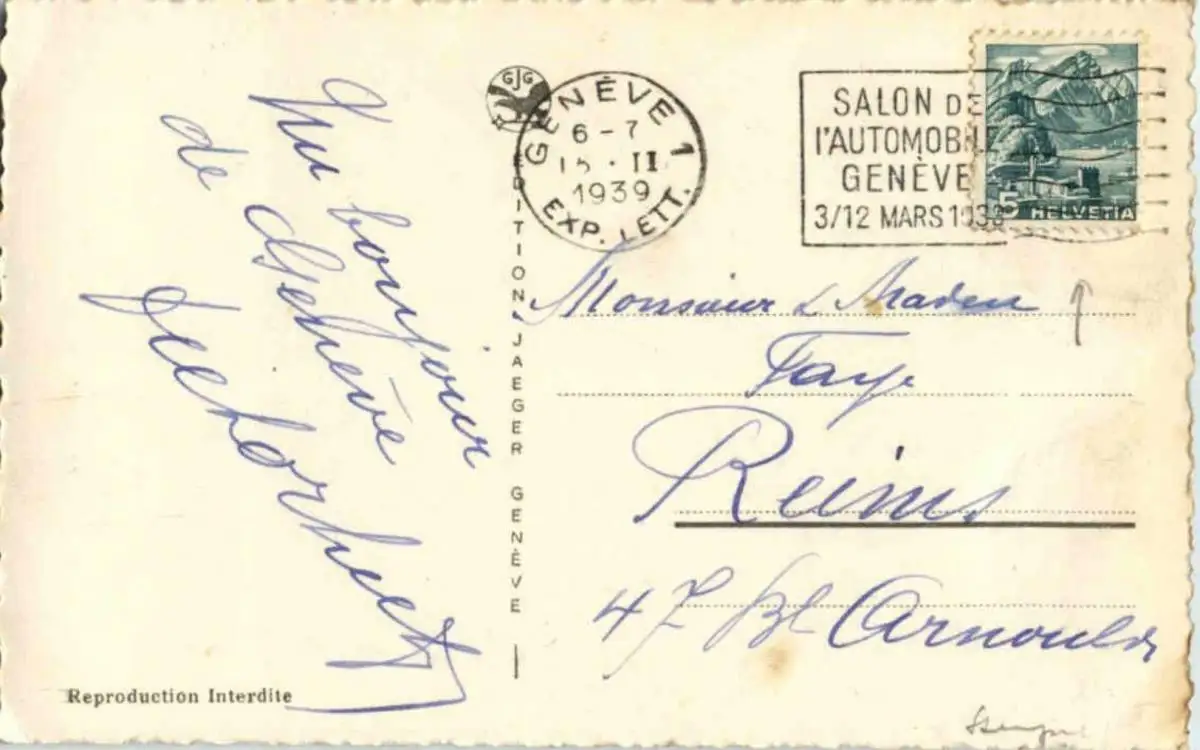 Un bonjour
de Genève
Reproduction Interdite
GJG
EDITION JAEGER GENÈVE
GENÈVE 1
6-7
15·II
1939
EXP. LETT.
SALON DE
l'AUTOMOBILE
GENÈVE
3/12 MARS 1939
5 HELVETIA
Monsieur & Madem
Faye
Reims
47 Bl Arnould